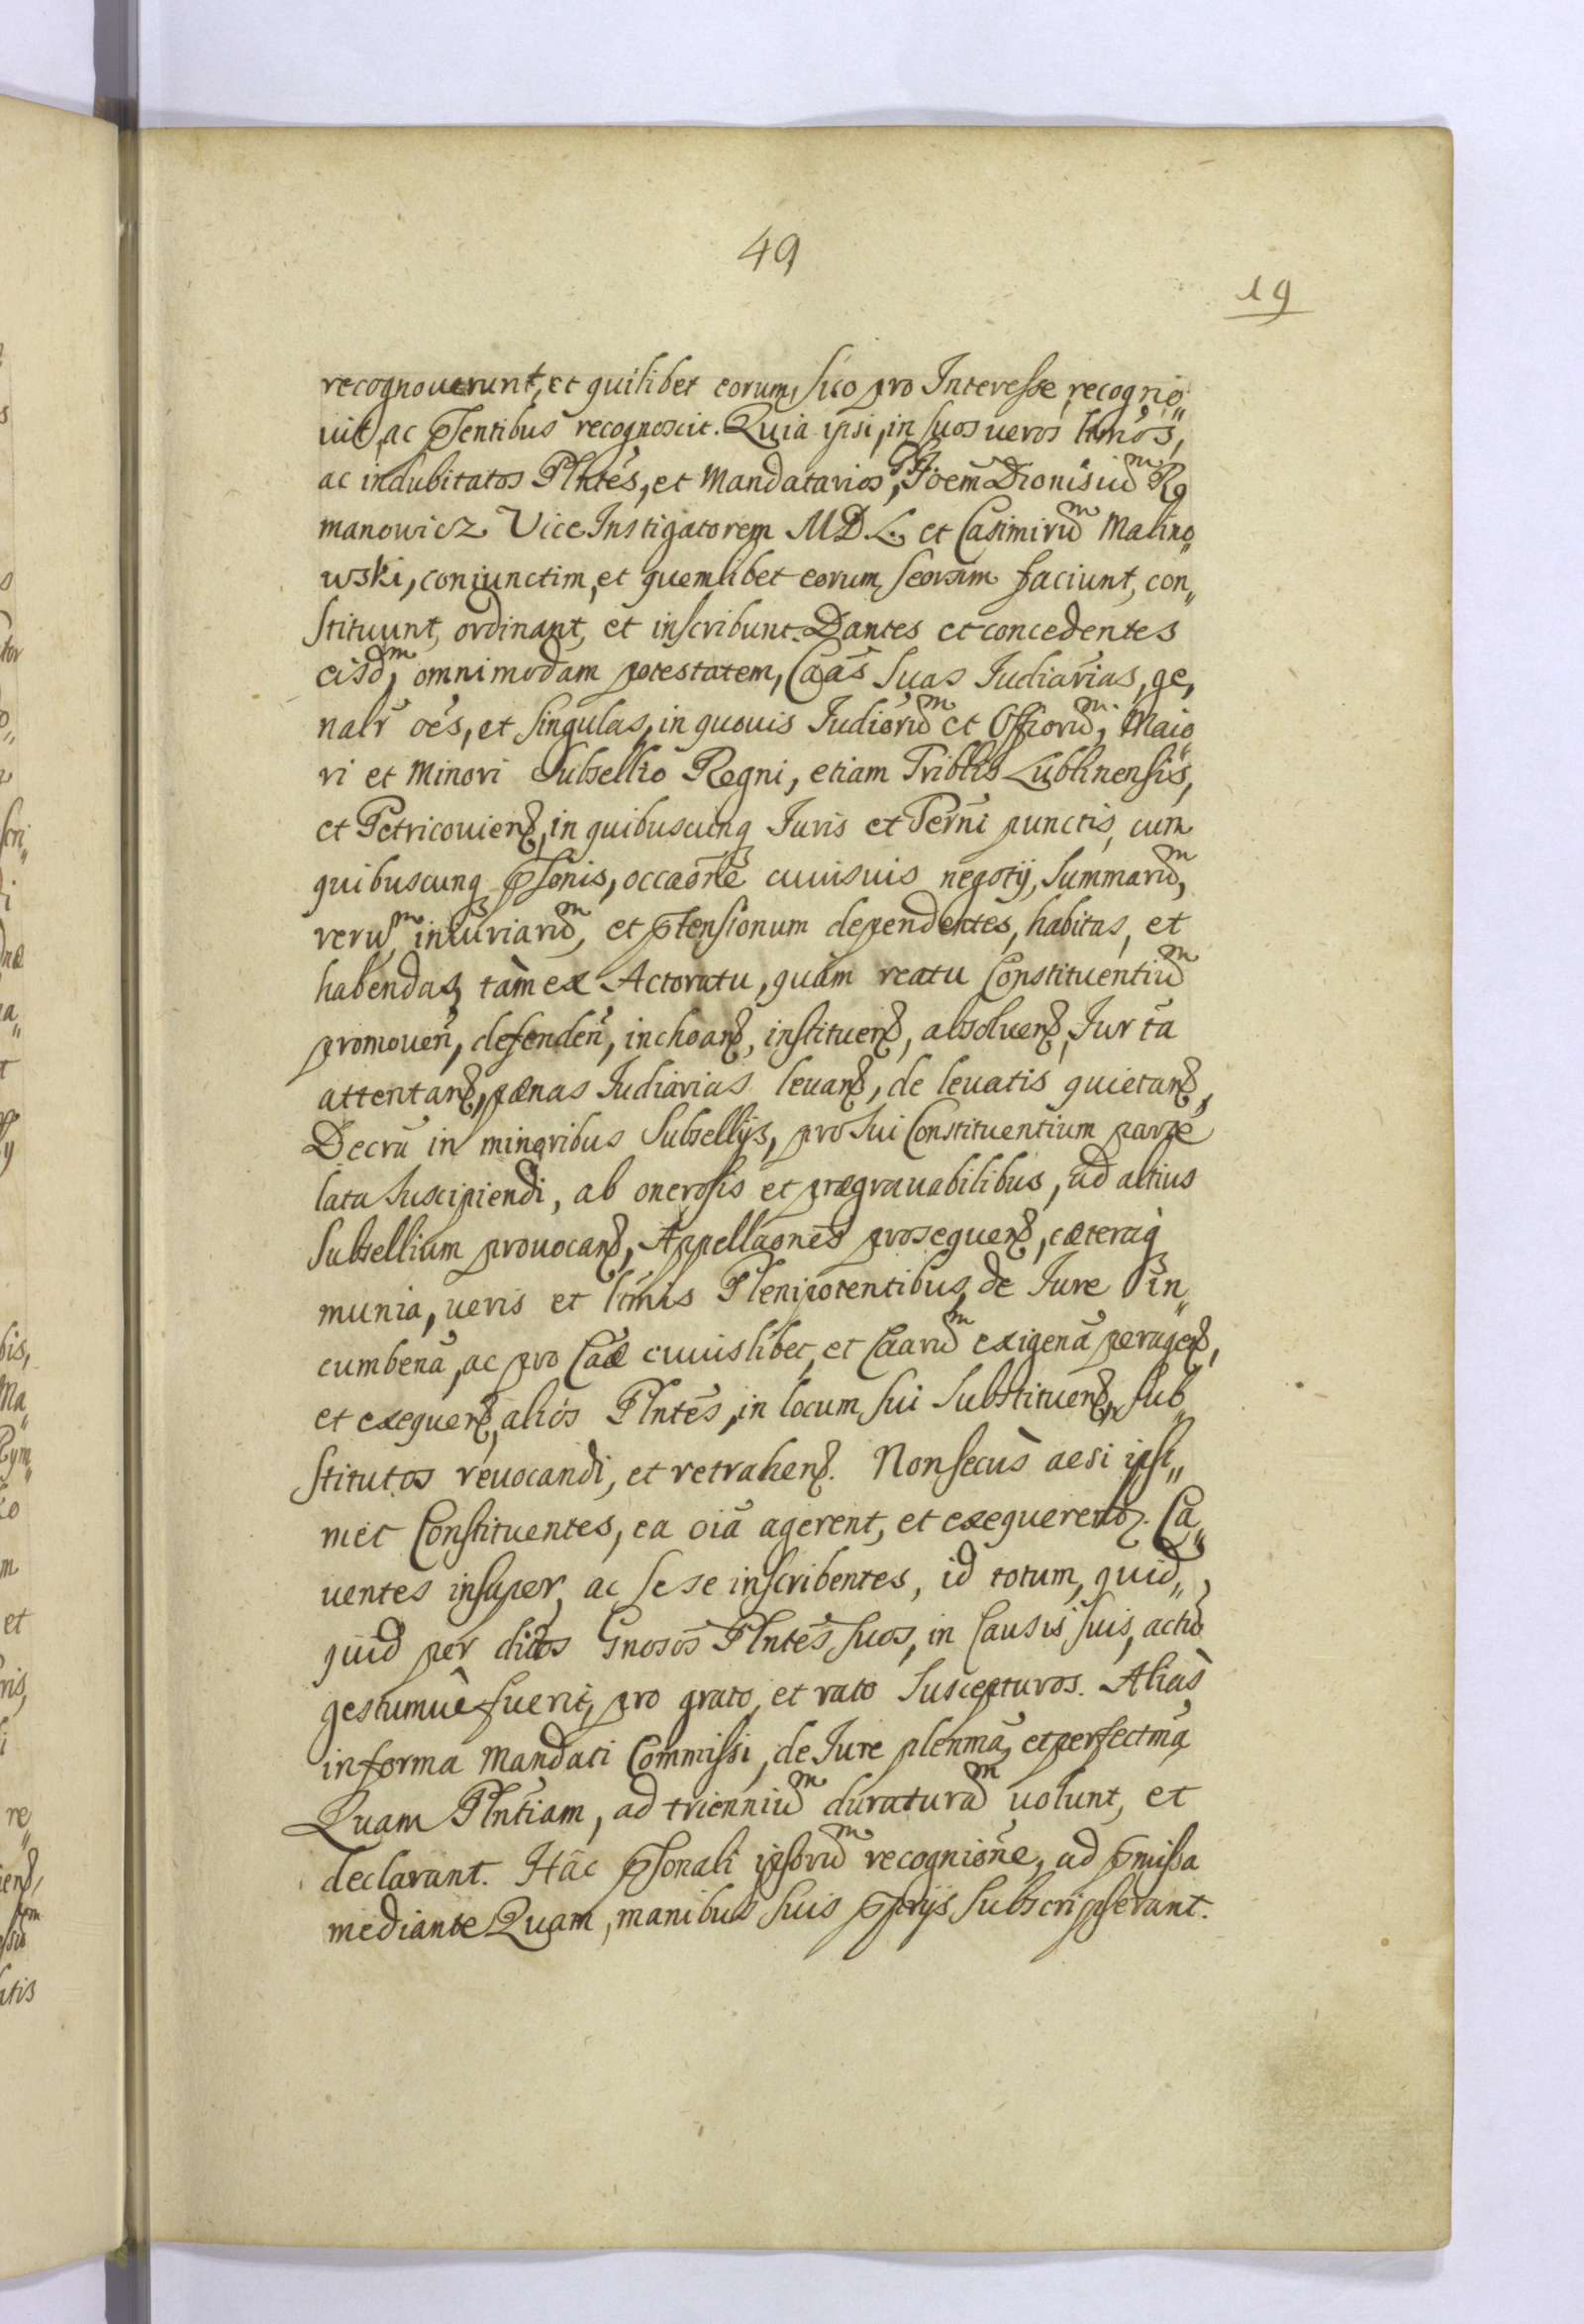 49
19
recognoverunt, et quilibet eorum, suo pro Interesse recogno„
uit, ac p̄sentibus recognoscit. Quia ipsi, in suos ueros ltmos̄,
ac indubitatos Plnteś, et Mandatarios, GG. Joem̄ Dionisiuᵐ Ro„
manowicz Vice Instigatorem M D L. et Casimiruᵐ Malino„
wski, coniunctim, et quemlibet eorum seorsim faciunt, con„
stituunt, ordinant, et inscribunt. Dantes et concedentes
eisdᵐ, omnimodam potestatem, Caās suas Judiārias, ge„
nalr̄ oēs, et singulas, in quouis Judiōruᵐ et Officioruᵐ, Maio„
ri et Minori Subsellio Regni, etiam Triblis Lublinensis,
et Petricouien̄, in quibuscunq Juris et Term̄i punctis, cum
quibuscunq p̄sonis, occaōne cuiusuis negotij, summaruᵐ,
reruᵐ, iniuriaruᵐ, et p̄tensionum dependentes, habitas, et
habendas, tàm ex Actoratu, quàm reatu Constituentiuᵐ
promouen̄, defenden̄, inchoan̄, instituen̄, absoluen̄, Jur ta
attentan̄, pænas Judiārias leuan̄, de leuatis quietan̄,
Decr̄a in minoribus Subsellijs, pro sui Constituentium parte
lata suscipiendi, ab onerosis et prægrauabilibus, ad altius
Subsellium prouocan̄, Appellaōnes prosequen̄, cæteraq
munia, ueris et ltimis Plenipotentibus, de Jure in„
cumben̄a, ac pro Caā cuiuslibet, et Caaruᵐ exigen̄a peragen̄,
et exequen̄, aliós Plnteś, in locum sui substituen̄, sub„
stitutos reuocandi, et retrahen̄. Non secus̀ ac si ipsi„
met Constituentes, ea oiā agerent, et exequerentur. Ca„
uentes insuper, ac sese inscribentes, id totum, quid„
quid per dictos Gnosos̄ Plnteś suos, in Causis suis, actū
gestumuè fuerit, pro grato, et rato suscepturos. Aliàs
in forma Mandati Commissi, de Jure plenmā, et perfectmā
Quam Plntīam, ad trienniuᵐ duraturaᵐ uolunt, et
declarant. Hāc p̄sonali ipsoruᵐ recogniōne, ad p̄missa
mediante Quam, manibus suis p̄prijs subscripserant.